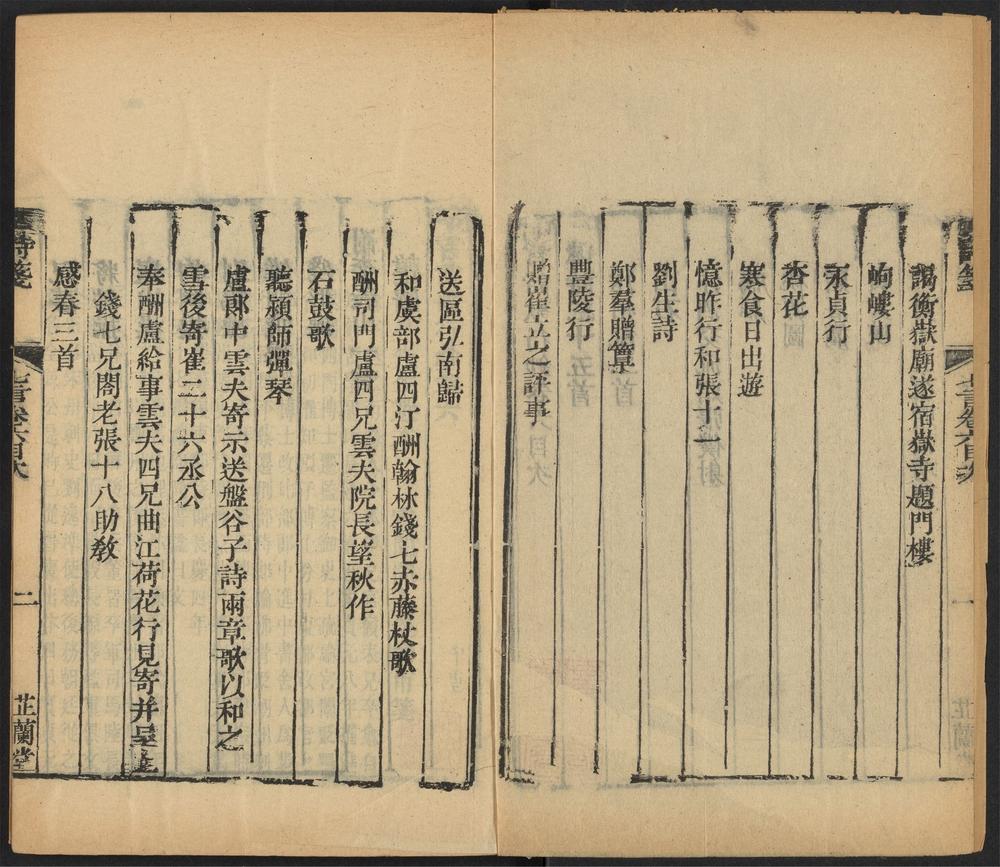 謁衡嶽廟遂宿嶽寺題門樓
岣嶁山
永貞行
杏花
寒食日出遊
憶昨行和張十一
劉生詩
鄭羣贈簟
豐陵行
贈崔立之評事
送區弘南歸
和虞部盧四汀酬翰林錢七赤藤杖歌
酬司門盧四兄雲夫院長望秋作
石鼓歌
聽穎師彈琴
盧郎中雲夫寄示送盤谷子詩兩章歌以和之
雪後寄崔二十六丞公
奉酬盧給事雲夫四兄曲江荷花行見寄并呈上
錢七兄閣老張十八助敎
感春三首
詩箋
卷六目次
二
芷蘭堂